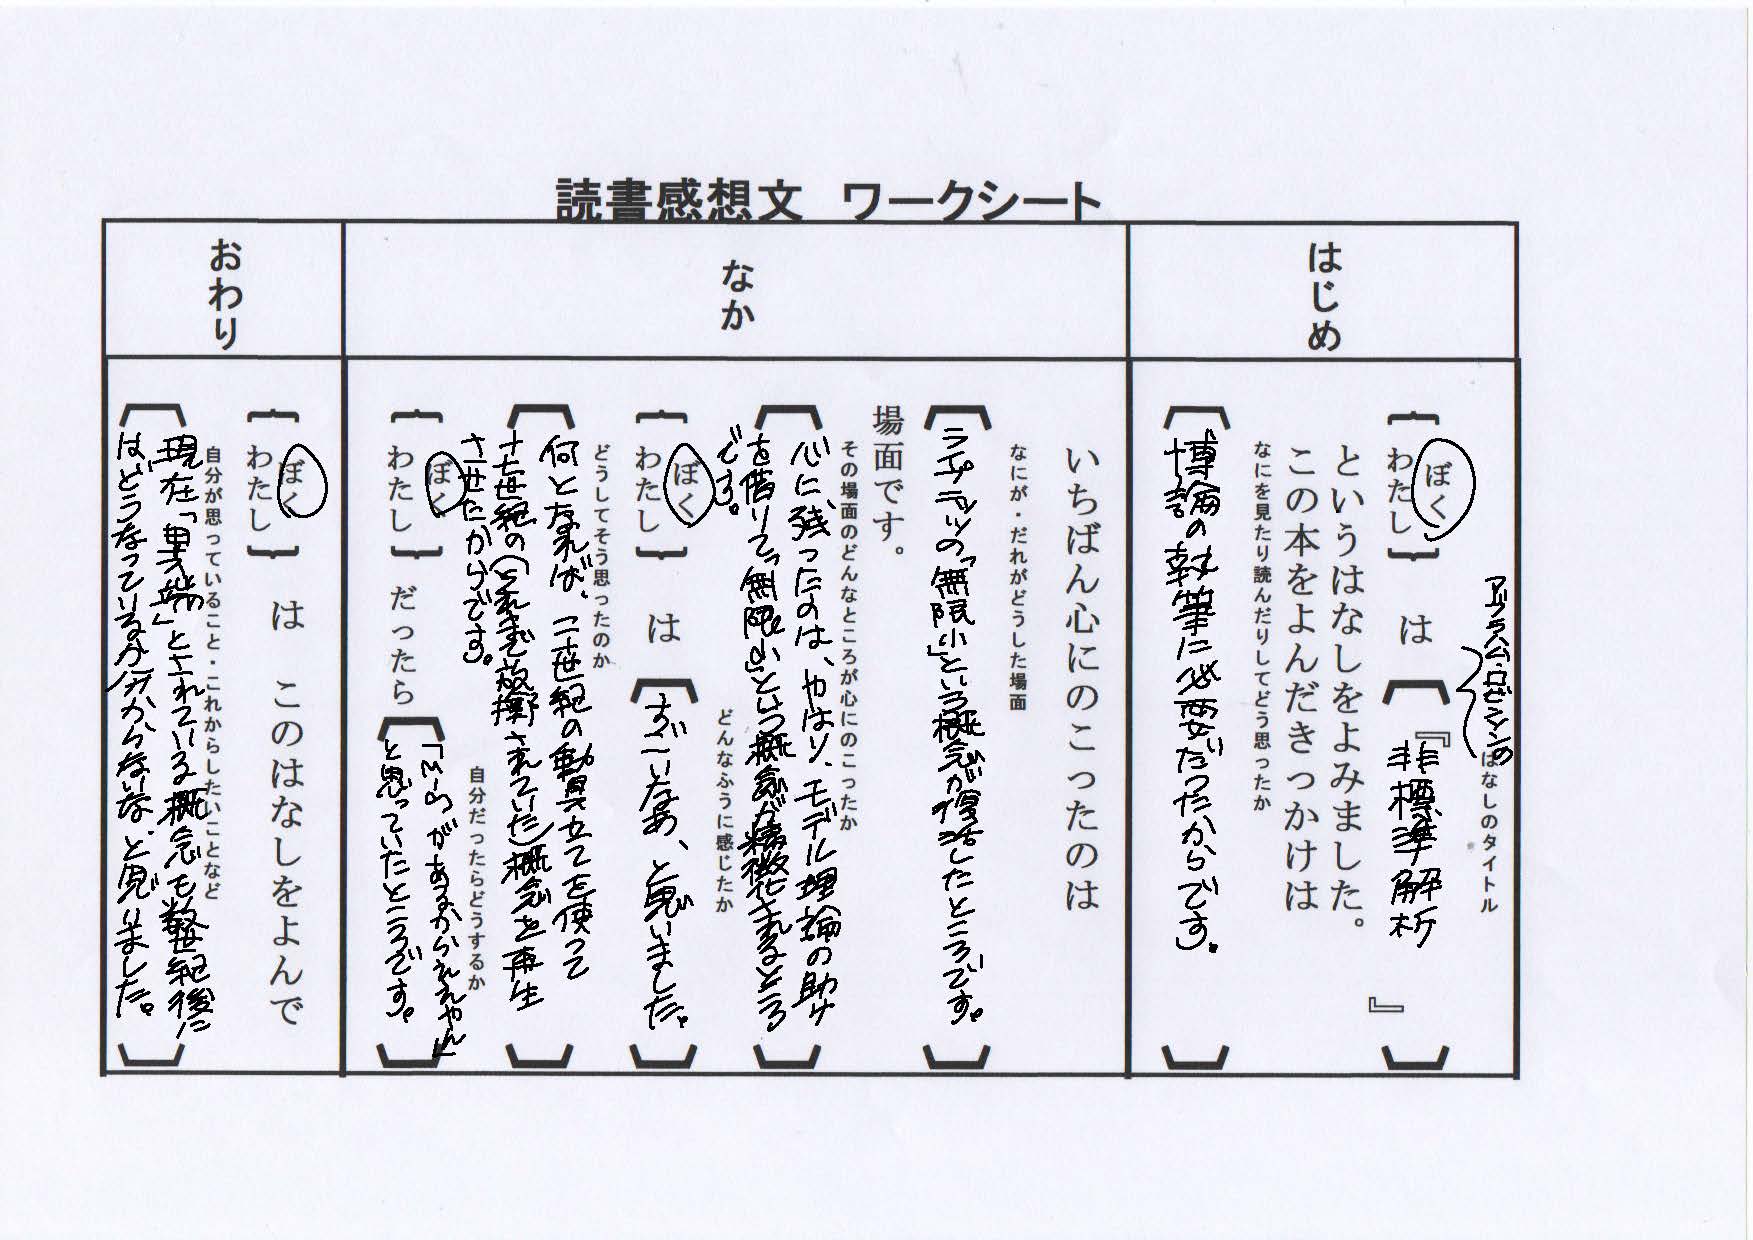 読書感想文　ワークシート
はじめ
アブラハム・ロビンソンの
はなしのタイトル
{ぼく
わたし} は 〔『非標準解析 』〕
というはなしをよみました。
この本をよんだきっかけは
なにを見たり読んだりしてどう思ったか
〔博論の執筆に必要だったからです。〕
なか
いちばん心にのこったのは
なにが・だれがどうした場面
〔ライプニッツの「無限小」という概念が復活したところです。〕
場面です。
その場面のどんなところが心にのこったか
〔心に残ったのは、やはり、モデル理論の助け
を借りて「無限小」という概念が精緻化されるところ
です。〕
どんなふうに感じたか
{ぼく
わたし} は 〔すごいなあ、と思いました。〕
どうしてそう思ったのか
〔何となれば、二十世紀の動具立てを使って
十七世紀の(それまで放擲されていた)概念を再生
させたからです。〕
自分だったらどうするか
{ぼく
わたし} だったら 〔「ε-δがあるからええやん」
と思っていたところです。〕
おわり
{ぼく
わたし} は　このはなしをよんで
自分が思っていること・これからしたいことなど
〔現在「異端」とされている概念も数世紀後に
はどうなっているか分からないな、と思いました。〕